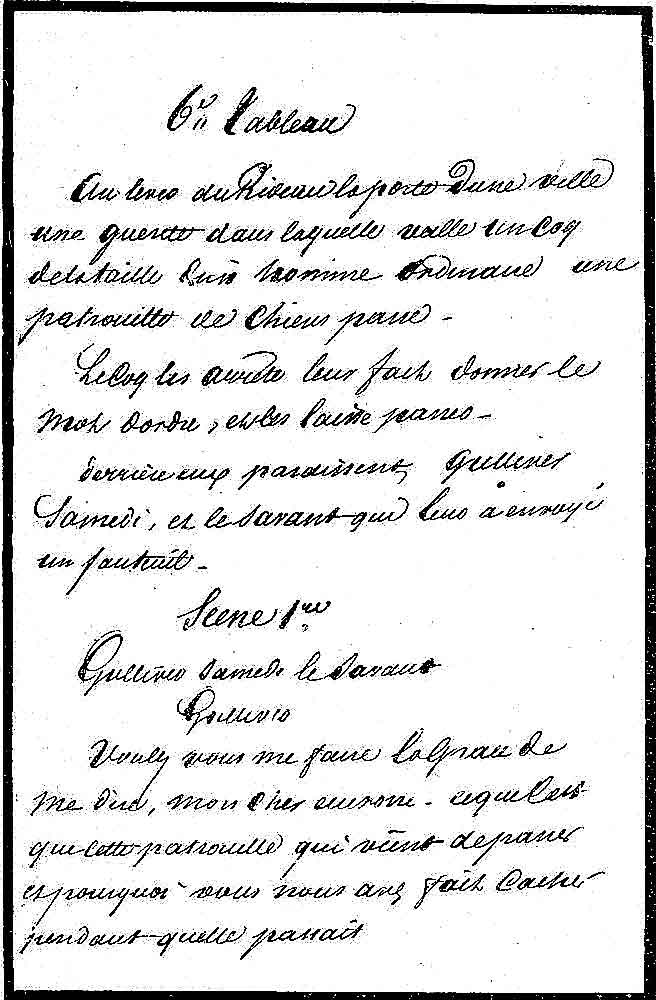 6e Tableau
Au levé du Rideau la porte dune ville
une guerite dans laquelle veille un Coq
de la taille d'un homme ordinaire une
patrouille de Chiens passe -
Le Coq les arrète leur fait donner le
mot dordre, et les laisse passer -
derrière eux paraissent, Gulliver
Samedi, et le Savant qui leur a envoyé
un fauteuil -
Scene 1re
Gulliver Samedi le Savant
Gulliver
Voulez vous me faire la Grace de
me dire, mon cher - ceque cest
que cette patrouille qui vient de passer
et pourquoi vous nous avez fait cacher
pendant quelle passait